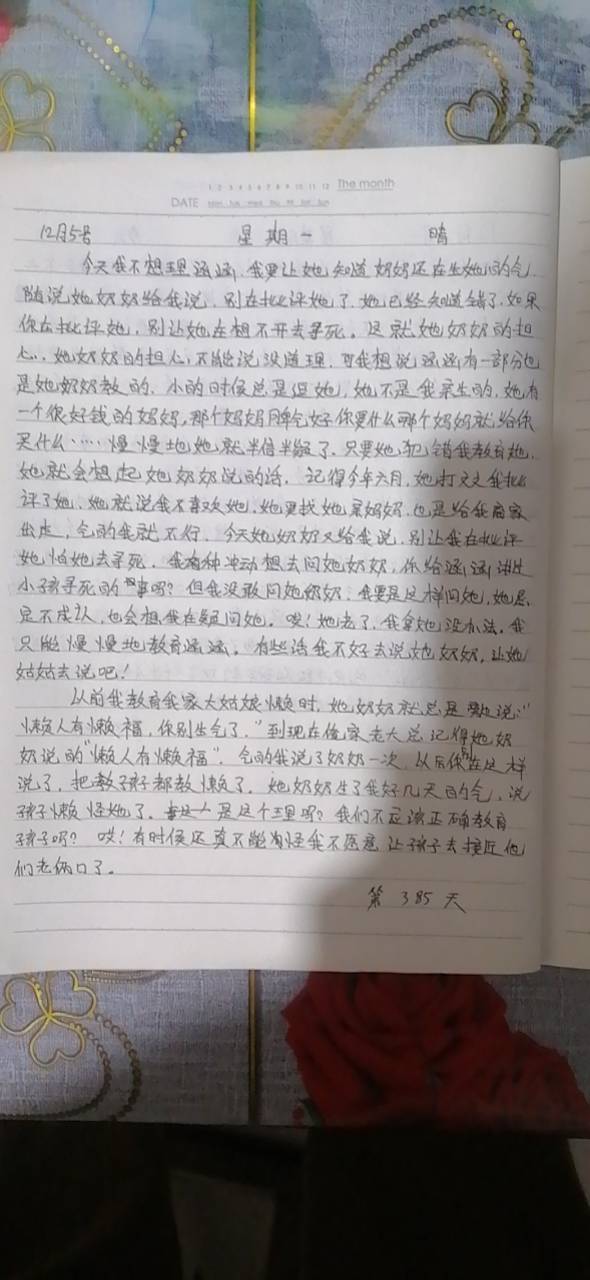 1 2 3 4 5 6 7 8 9 10 11 12 The month
DATE Mon Tue Wed Thu Fri Sat Sun
12月5号 星期一 晴
今天我不想理涵涵,我要让她知道奶奶还在生她的气.
随说她奶奶给我说,别在批评她了,她已经知道错了.如果
你在批评她,别让她在想不开去寻死。这就她奶奶的担
心.她奶奶的担心不能说没道理,可我想说涵涵有一部分也
是她奶奶教的,小的时候总是逗她,她不是我亲生的,她有
一个很好钱的妈妈,那个妈妈脾气好你要什么那个妈妈就给你
买什么……慢慢地她就半信半疑了,只要她犯错我教育她,
她就会想起她奶奶说的话,记得今年六月,她打文文我批
评了她,她就说我不喜欢她,她要找她亲妈妈,也是给我离家
出走,气的我就不行,今天她奶奶又给我说,别让我在批评
她怕她去寻死,我有种冲动想去问她奶奶,你给涵涵讲过
小孩寻死的事吗?但我没敢问她奶奶,我要是这样问她,她肯
定不成认,也会想我在疑问她。哎!她老了,我拿她没办法,我
只能慢慢地教育涵涵,有些话我不好去说她奶奶,让她
姑姑去说吧!
从前我教育我家大姑娘懒时,她奶奶就总是 说:"
懒人有懒福,你别生气了."到现在俺家老大总记得她奶
奶说的"懒人有懒福".气的我说了奶奶一次,以后你别在这样
说了,把教孩子都教懒了,她奶奶生了我好几天的气,说
孩子懒怪她了, 是这个理吗?我们不应该正确教育
孩子吗?哎!有时候还真不能 怪我不愿意让孩子去接近他
们老俩口了。
第 385 天